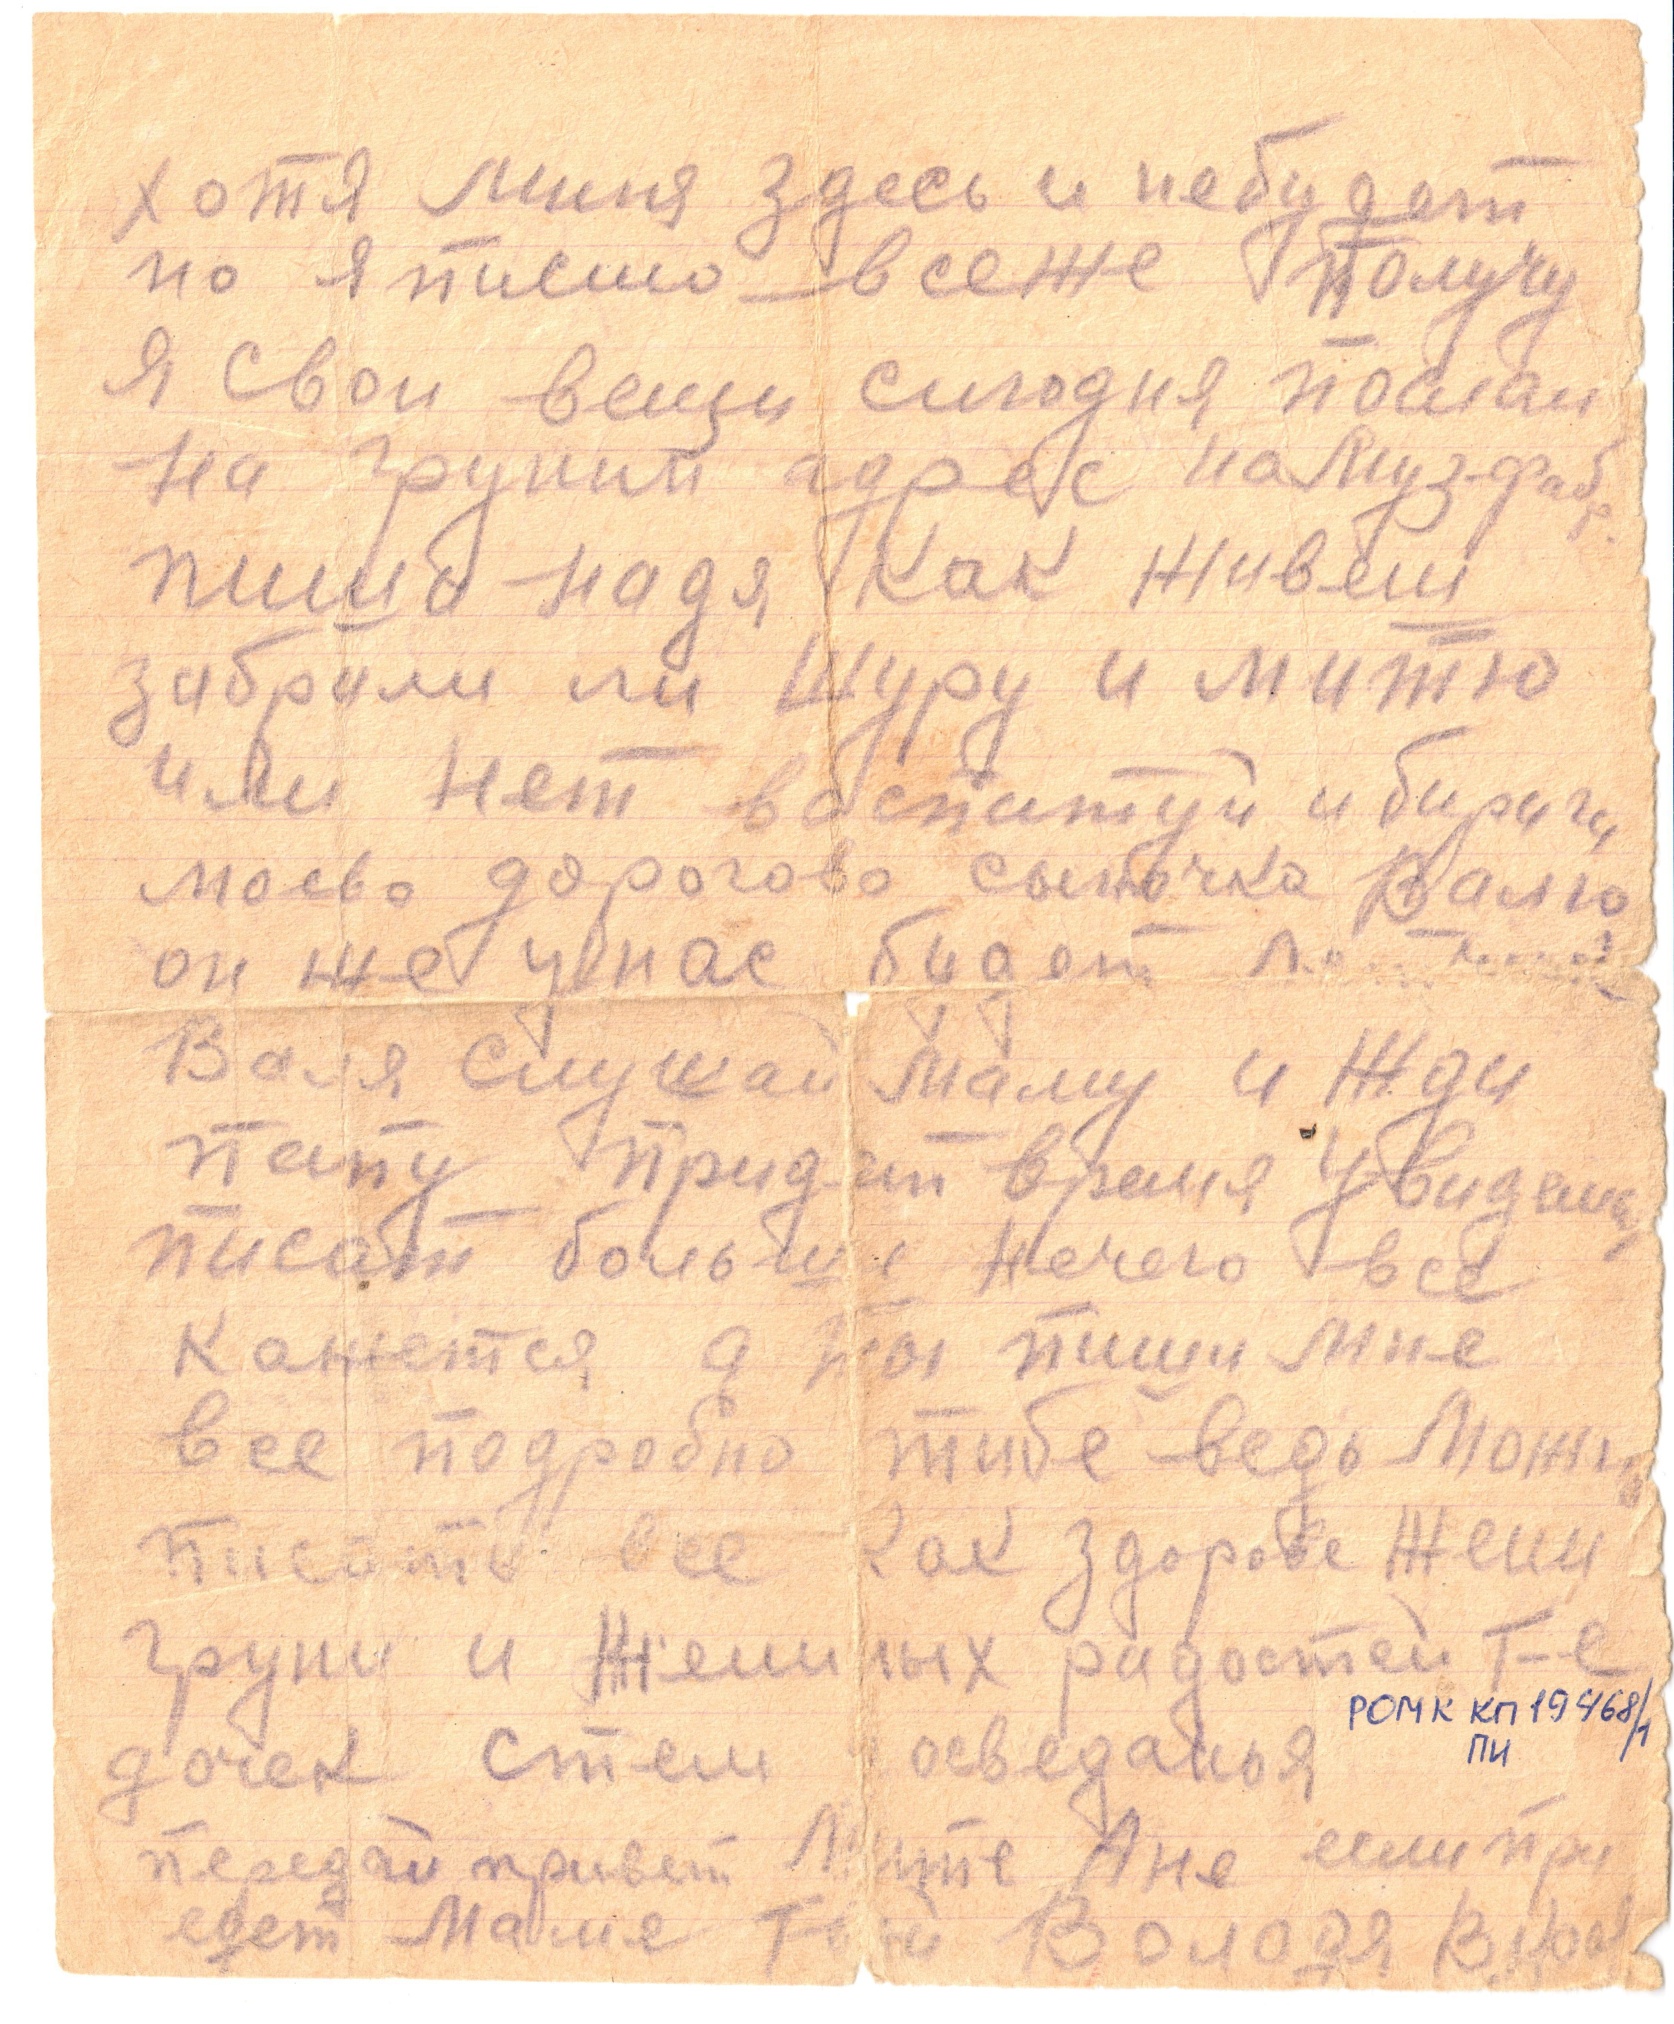 хотя миня здесь и небудет
но я писмо всеже получу
я свои вещи сигодня послал
на грунин адрес на Муз-фабр.
пиши надя как живеш
забрали ли Шуру и митю
или нет воспитуй и бириги
моево дорогово сыночка Валю
он же у нас будет
Валя слушай маму и Жди
папу придет время увидемся
писат больши нечего все
кажется а ты пиши мне
все подробно тибе ведь можно
писать все как здорове Жени
груни и Жениных радостей т-е
РОМК КП 19468/1
ПИ
дочек стем осведанья
передай привет Мите Ане если при
едет Маме твой Володя